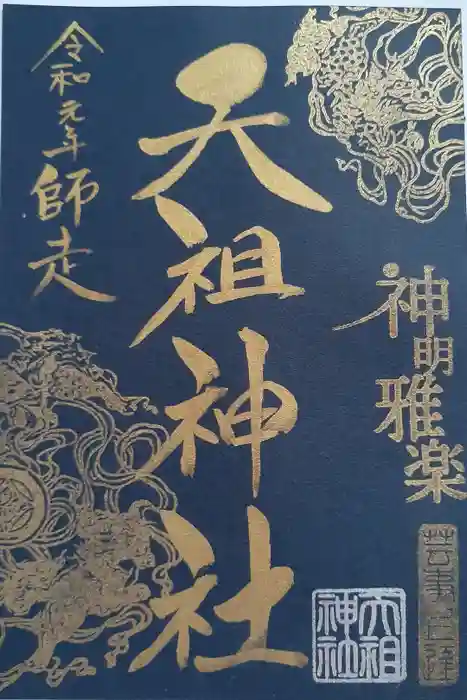 神明雅楽
芸事上達
天祖神社
天祖神社
令和元年
師走